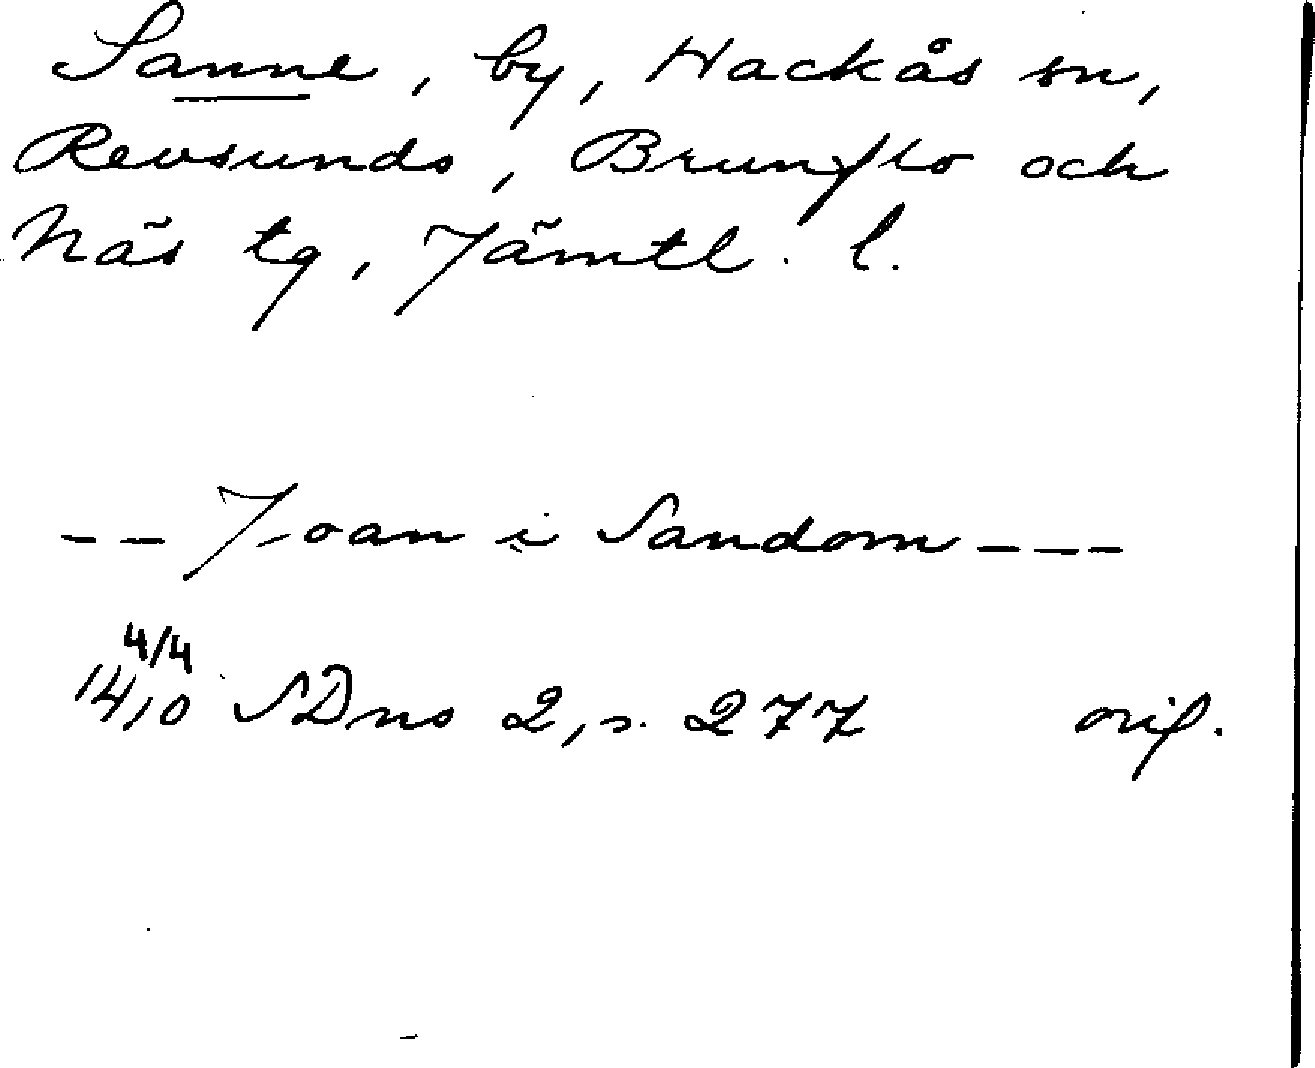 Sanne, by, Hackås sn,
Revsunds, Brunflo och
Näs tg, Jämtl. l.
-- Joan i Sandom ---
4/4
1410 SDns 2, s. 277 orig.